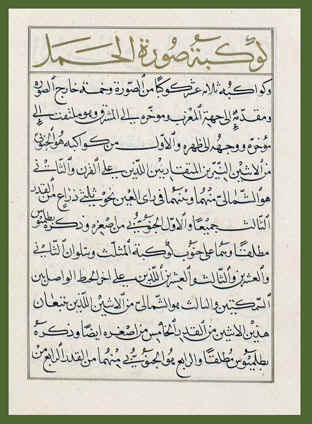 كوكبة صورة الحمل
وكواكبه ثلاثة عشر كوكبًا من الصورة وخمسة خارج الصورة
ومقدمه إلى جهة المغرب ومؤخره إلى المشرق وهو ملتفت إلى
مؤخره ووجهه إلى ظهره والأول من كواكبه هو الجنوبي
من الاثنين النيرين المتقاربين اللذين على القرن والثاني
هو الشمالي منهما وبينهما في رأي العين نحو ذراع من القدر
الثالث جميعًا والأول الجنوبي من أصغره وذكره بطلميوس
مطلقًا وهما على جنوب كوكبة المثلث ويتلوان الثاني
والعشرين والثالث والعشرين اللذين على آخر الخط الواصل بين
والثالث هو الشمالي من الاثنين اللذين يتبعان
هذين الاثنين من القدر الخامس من أصغره أيضًا وذكره
بطلميوس مطلقًا والرابع هو الجنوبي منهما من القدر الرابع من